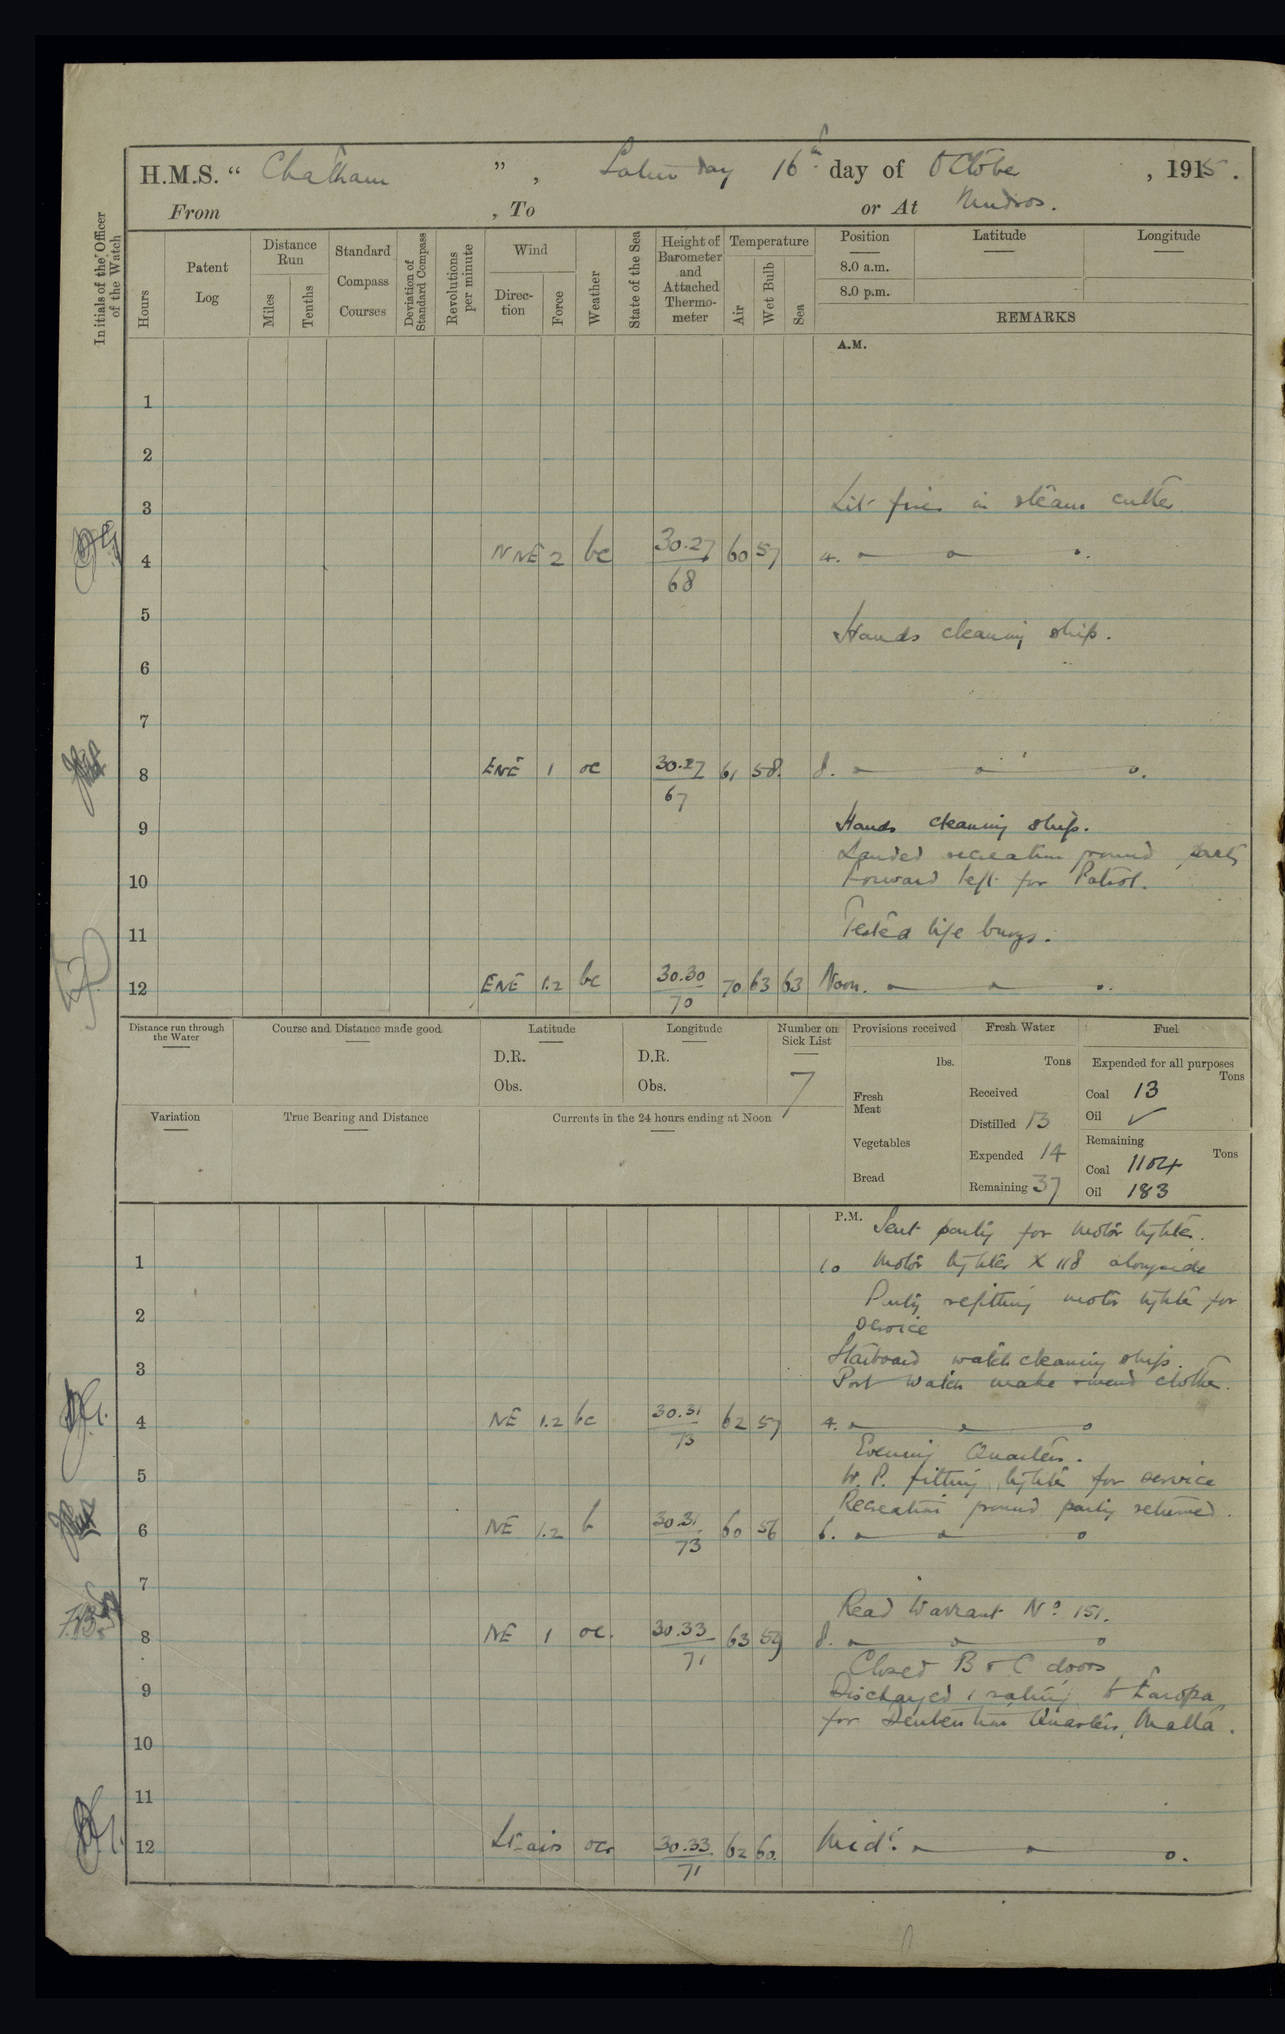 H.M.S. " Chatham " , Saturday 16th day of October , 1915.
From , To or At Mudros.
Initials of the Officer of the Watch
Hours
Patent Log
Distance Run
Miles
Tenths
Standard Compass Courses
Deviation of Standard Compass
Revolutions per minute
Wind
Direction
Force
Weather
State of the Sea
Height of Barometer and Attached Thermometer
Temperature
Air
Wet Bulb
Sea
Position
Latitude
Longitude
8.0 a.m.
8.0 p.m.
REMARKS
A.M.
1
2
3 Lit fires in steam cutter
4 NNE 2 bc 30.27 60 57 4.
68
5
Hands cleaning ship.
6
7
8 ENE 1 oc 30.27 61 58 8.
67
9 Hands cleaning ship.
Landed recreation ground party
10 Foxward left for Patrol.
11 Tested life buoys.
12 ENE 1.2 bc 30.30 70 63 63 Noon.
70
Distance run through the Water
Course and Distance made good
Latitude
D.R.
Obs.
Longitude
D.R.
Obs.
Number on Sick List
7
Provisions received
lbs.
Fresh Meat
Vegetables
Bread
Fresh Water
Tons
Received
Distilled 13
Expended 14
Remaining 37
Fuel
Expended for all purposes
Tons
Coal 13
Oil ✓
Remaining
Tons
Coal 1104
Oil 183
Variation
True Bearing and Distance
Currents in the 24 hours ending at Noon
P.M. Sent party for motor lighter.
1 1.0 Motor lighter X 118 alongside
Party refitting motor lighter for
2 service
Starboard watch cleaning ship.
3 Port watch make & mend clothes.
4 NE 1.2 bc 30.31 62 57 4.
73
Evening Quarters.
5 W.P. fitting lighter for service
Recreation ground party returned.
6 NE 1.2 b 30.31 60 56 6.
73
7
Read Warrant No 151.
8 NE 1 oc. 30.33 63 59 8.
71
Closed B & C doors
9 Discharged 1 rating to Europa
for Detention Quarters, Malta.
10
11
12 Lt airs ocr 30.33 62 60 Midt.
71